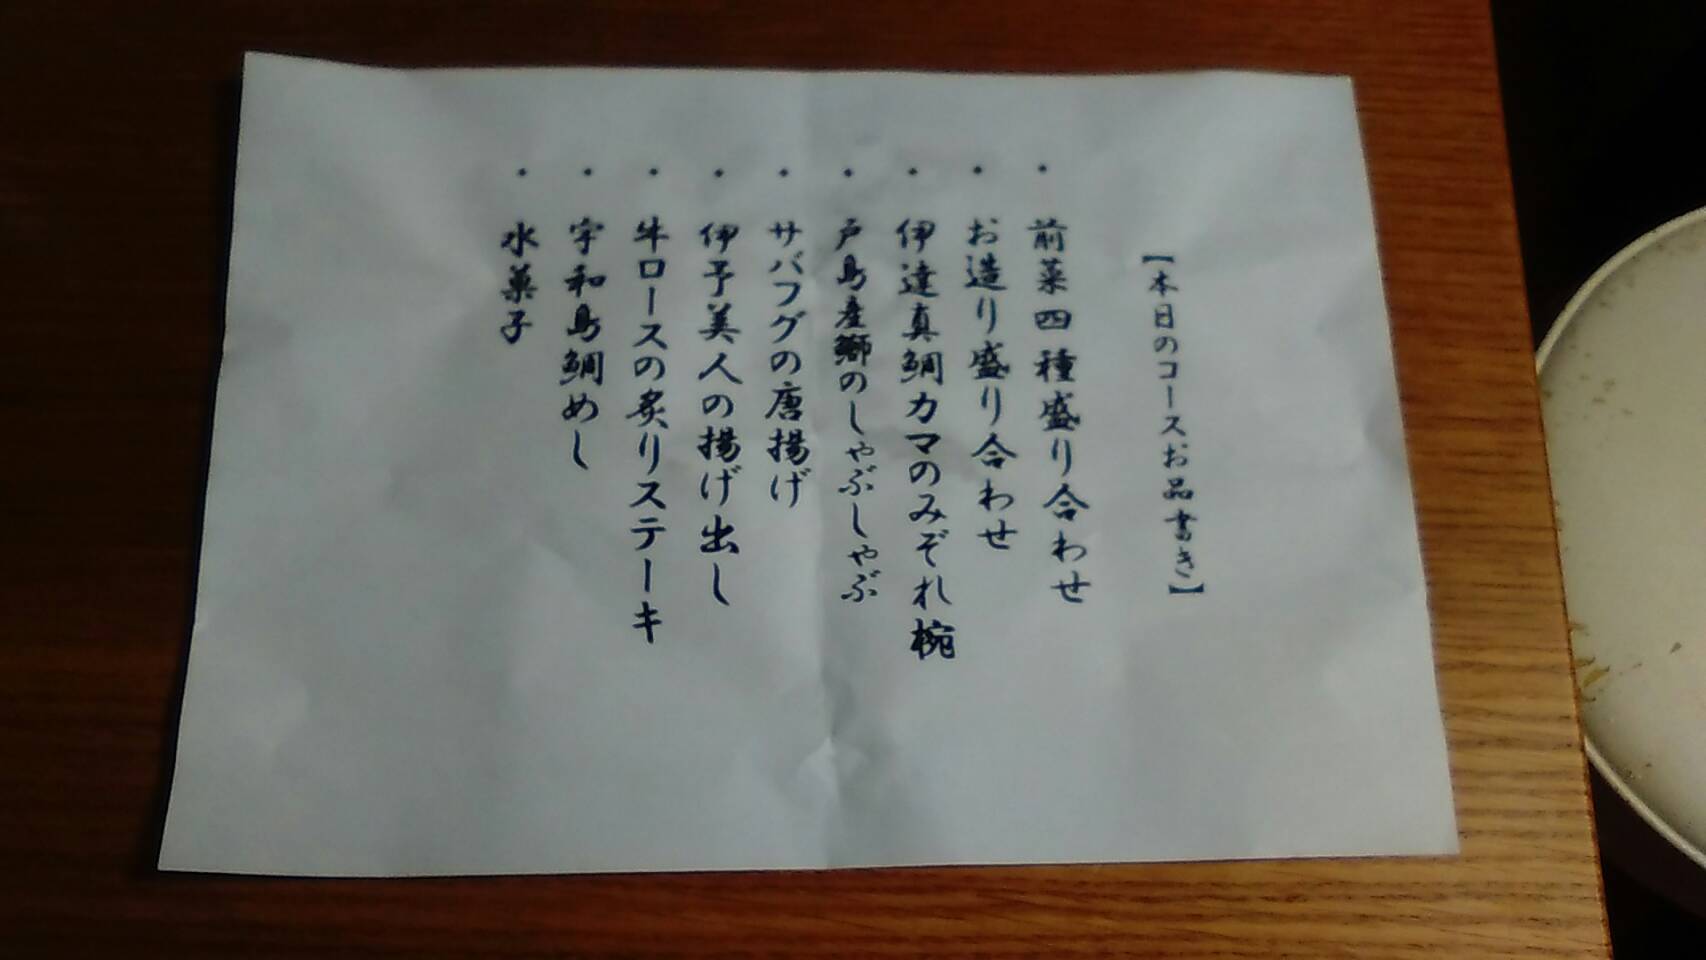 【本日のコースお品書き】
・前菜四種盛り合わせ
・お造り盛り合わせ
・伊達真鯛カマのみぞれ椀
・戸島産鰤のしゃぶしゃぶ
・サバフグの唐揚げ
・伊予美人の揚げ出し
・牛ロースの炙りステーキ
・宇和島鯛めし
・水菓子